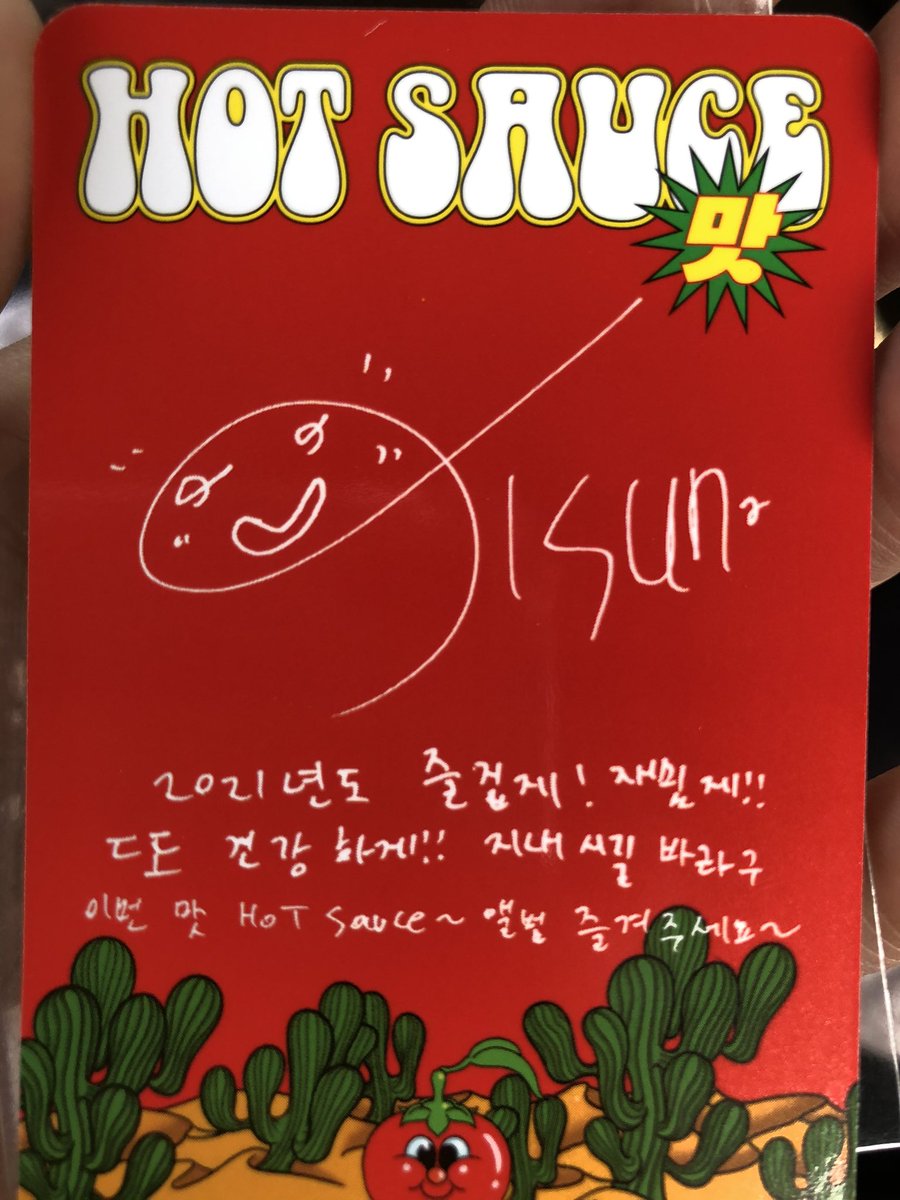 HOT SAUCE
맛
Jisung
2021년도 즐겁게! 재밌게!!
ㄷ도 건강하게!! 지내시길 바라구
이번 맛 HOT Sauce~ 앨범 즐겨주세요~